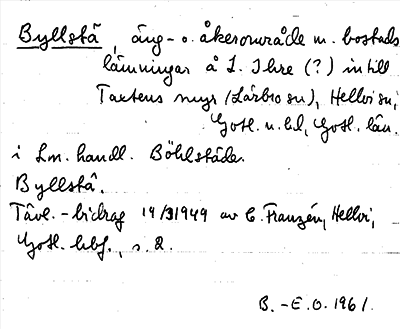 Byllstä, äng- o. åkerområde m. bostads
lämningar å L. Ihre (?) intill
Tartens myr (Lärbro sn), Hellvi sn,
Gotl. n. hd, Gotl. län.
i Lm. handl. Böhlstäde.
Byllstâ.
Tävl.-bidrag 19/3 1949 av C. Franzén, Hellvi,
Gotl. hbf., s. 2.
B.-E.O. 1961.